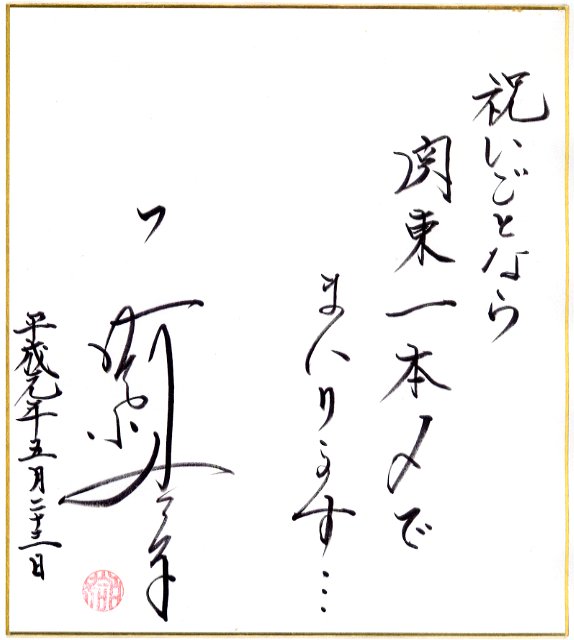 祝いごとなら
関東一本〆で
まいります…
平成元年五月二十二日